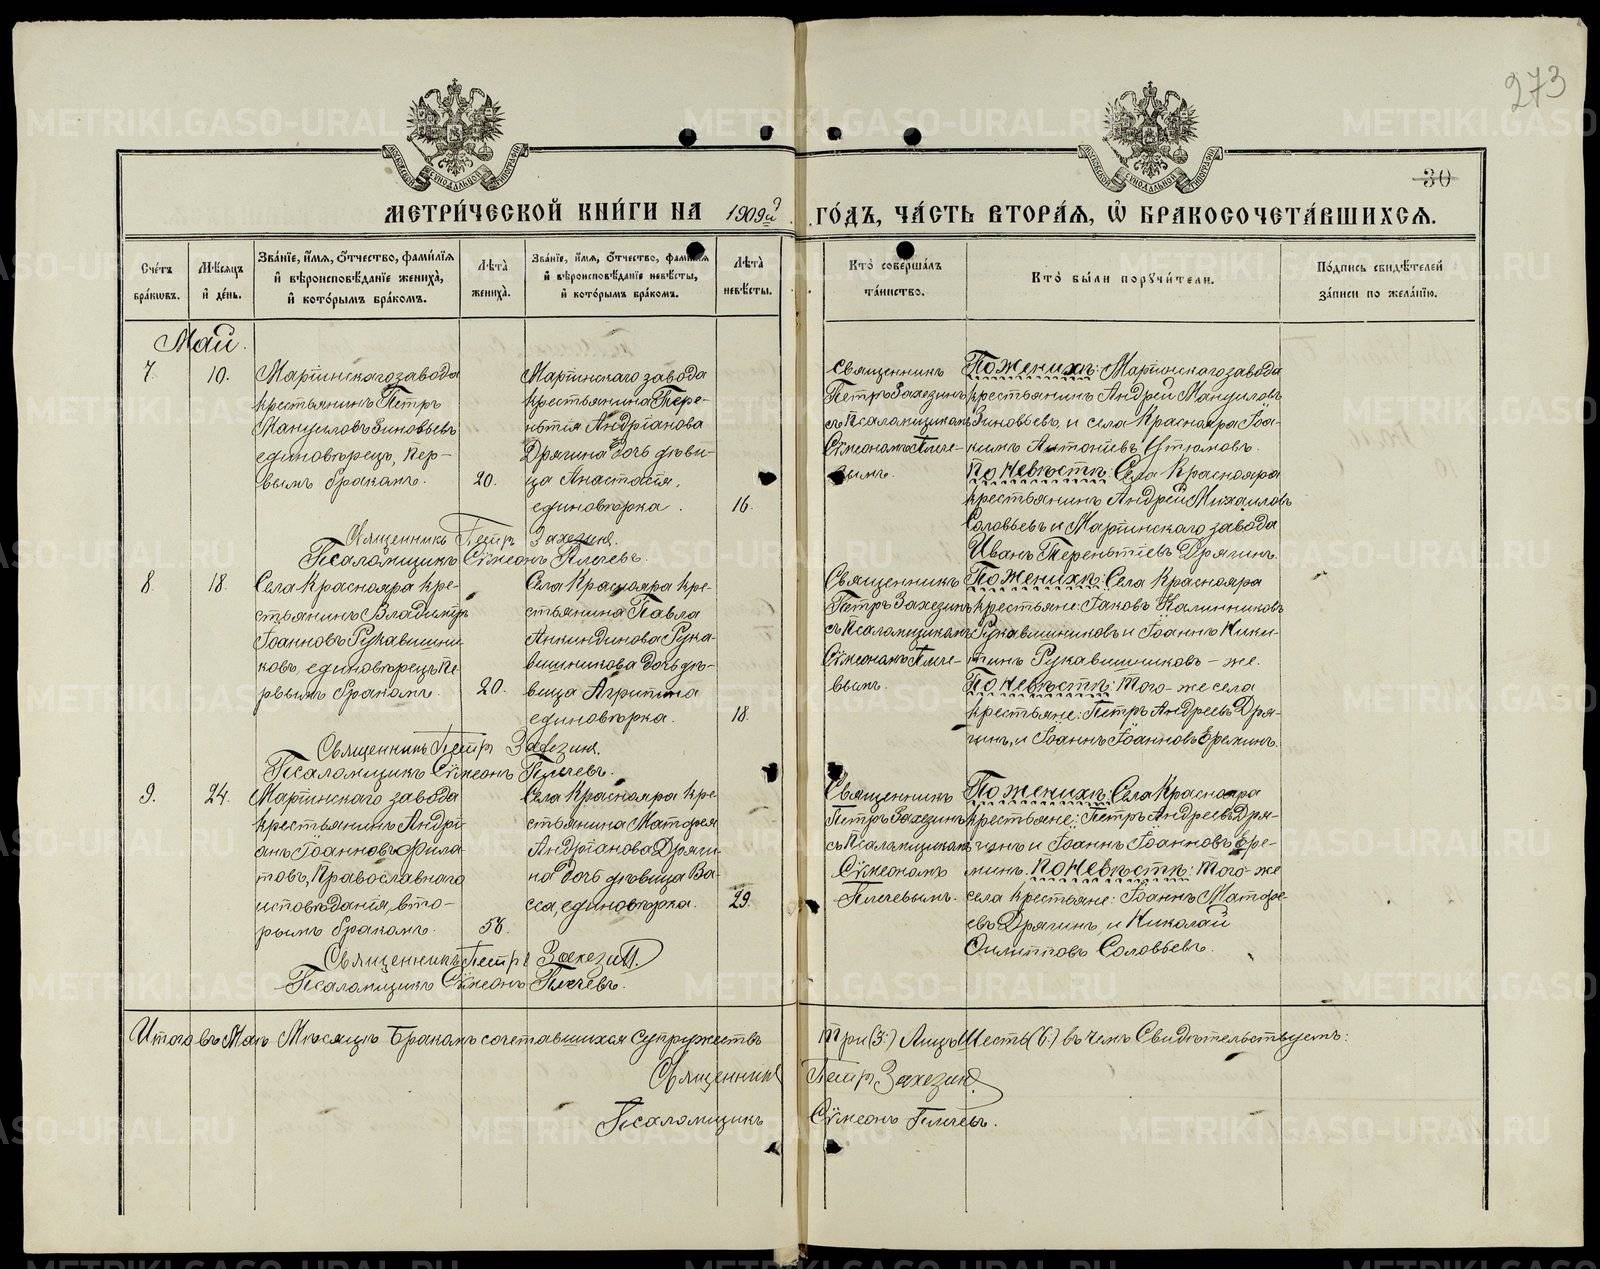 273
30
МЕТРИ́ЧЕСКОЙ КНИ́ГИ НА 1909й ГО́ДЪ, ЧА́СТЬ ВТОРА́Я, Ѿ БРАКОСОЧЕТА́ВШИХСЯ.
Сче́тъ бра́кѡвъ.
Мѣ́сяцъ и҆ де́нь.
Зва́нїе, и҆́мя, ѻ҆́тчество, фами́лїя и҆ вѣроисповѣ́данїе жениха̀, и҆ кото́рымъ бра́комъ.
Лѣ́та жениха̀.
Зва́нїе, и҆́мя, ѻ҆́тчество, фами́лїя и҆ вѣроисповѣ́данїе невѣ́сты, и҆ кото́рымъ бра́комъ.
Лѣ́та невѣ́сты.
Кто̀ соверша́лъ та́инство.
Кто̀ бы́ли порꙋчи́тели.
По́дпись свидѣ́телей за́писи по жела́нїю.
Май.
7.
10.
Маріинскаго завода
крестьянинъ Петръ
Мануиловъ Зиновьевъ
единовѣрецъ, пер-
вымъ бракомъ.
20.
Маріинскаго завода
крестьянина Тере-
нтія Андріанова
Дрягина дочь дѣви-
ца Анастасія,
единовѣрка.
16.
Священникъ
Петръ Захезинъ
съ Псаломщикомъ
Сѵмеономъ Плече-
вымъ.
По женихѣ: Маріинскаго завода
крестьянинъ Андрей Мануиловъ
Зиновьевъ, и села Краснояра Іоа-
кимъ Антоніевъ Утюмовъ.
По невѣстѣ: Села Краснояра
крестьянинъ Андрей Михаиловъ
Соловьевъ и Маріинскаго завода
Иванъ Терентіевъ Дрягинъ.
Священникъ Петръ Захезинъ.
Псаломщикъ Сѵмеонъ Плечевъ.
8.
18.
Села Краснояра кре-
стьянинъ Владиміръ
Іоанновъ Рукавишни-
ковъ, единовѣрецъ пе-
рвымъ бракомъ.
20.
Села Краснояра кре-
стьянина Павла
Анкиндинова Рука-
вишникова дочь дѣ-
вица Агрипина
единовѣрка.
18.
Священникъ
Петръ Захезинъ
съ Псаломщикомъ
Сѵмеономъ Плече-
вымъ.
По женихѣ: Села Краснояра
крестьяне: Іаковъ Калинниковъ
Рукавишниковъ и Іоаннъ Ники-
тинъ Рукавишниковъ – же.
По невѣстѣ: того-же села
крестьяне: Петръ Андреевъ Дря-
гинъ, и Іоаннъ Іоанновъ Еремкинъ.
Священникъ Петръ Захезинъ.
Псаломщикъ Сѵмеонъ Плечевъ.
9.
24.
Маріинскаго завода
крестьянинъ Андрі-
анъ Іоанновъ Фила-
товъ, Православнаго
исповѣданія, вто-
рымъ бракомъ.
56.
Села Краснояра кре-
стьянина Матфея
Андріанова Дряги-
на дочь дѣвица Ва-
сса, единовѣрка.
29.
Священникъ
Петръ Захезинъ
съ Псаломщикомъ
Сѵмеономъ
Плечевымъ.
По женихѣ: Села Краснояра
крестьяне: Петръ Андреевъ Дря-
гинъ и Іоаннъ Іоанновъ Ере-
минъ. По невѣстѣ: того-же
села крестьяне: Іоаннъ Матфе-
евъ Дрягинъ, и Николай
Филипповъ Соловьевъ.
Священникъ Петръ Захезинъ.
Псаломщикъ Сѵмеонъ Плечевъ.
Итого въ Маѣ Мѣсяцѣ Бракомъ сочетавшихся Супружествъ Три (3.) Лицъ Шесть (6.) въ чемъ Свидѣтельствуемъ:
Священникъ Петръ Захезинъ
Псаломщикъ Сѵмеонъ Плечевъ.
METRIKI.GASO-URAL.RU